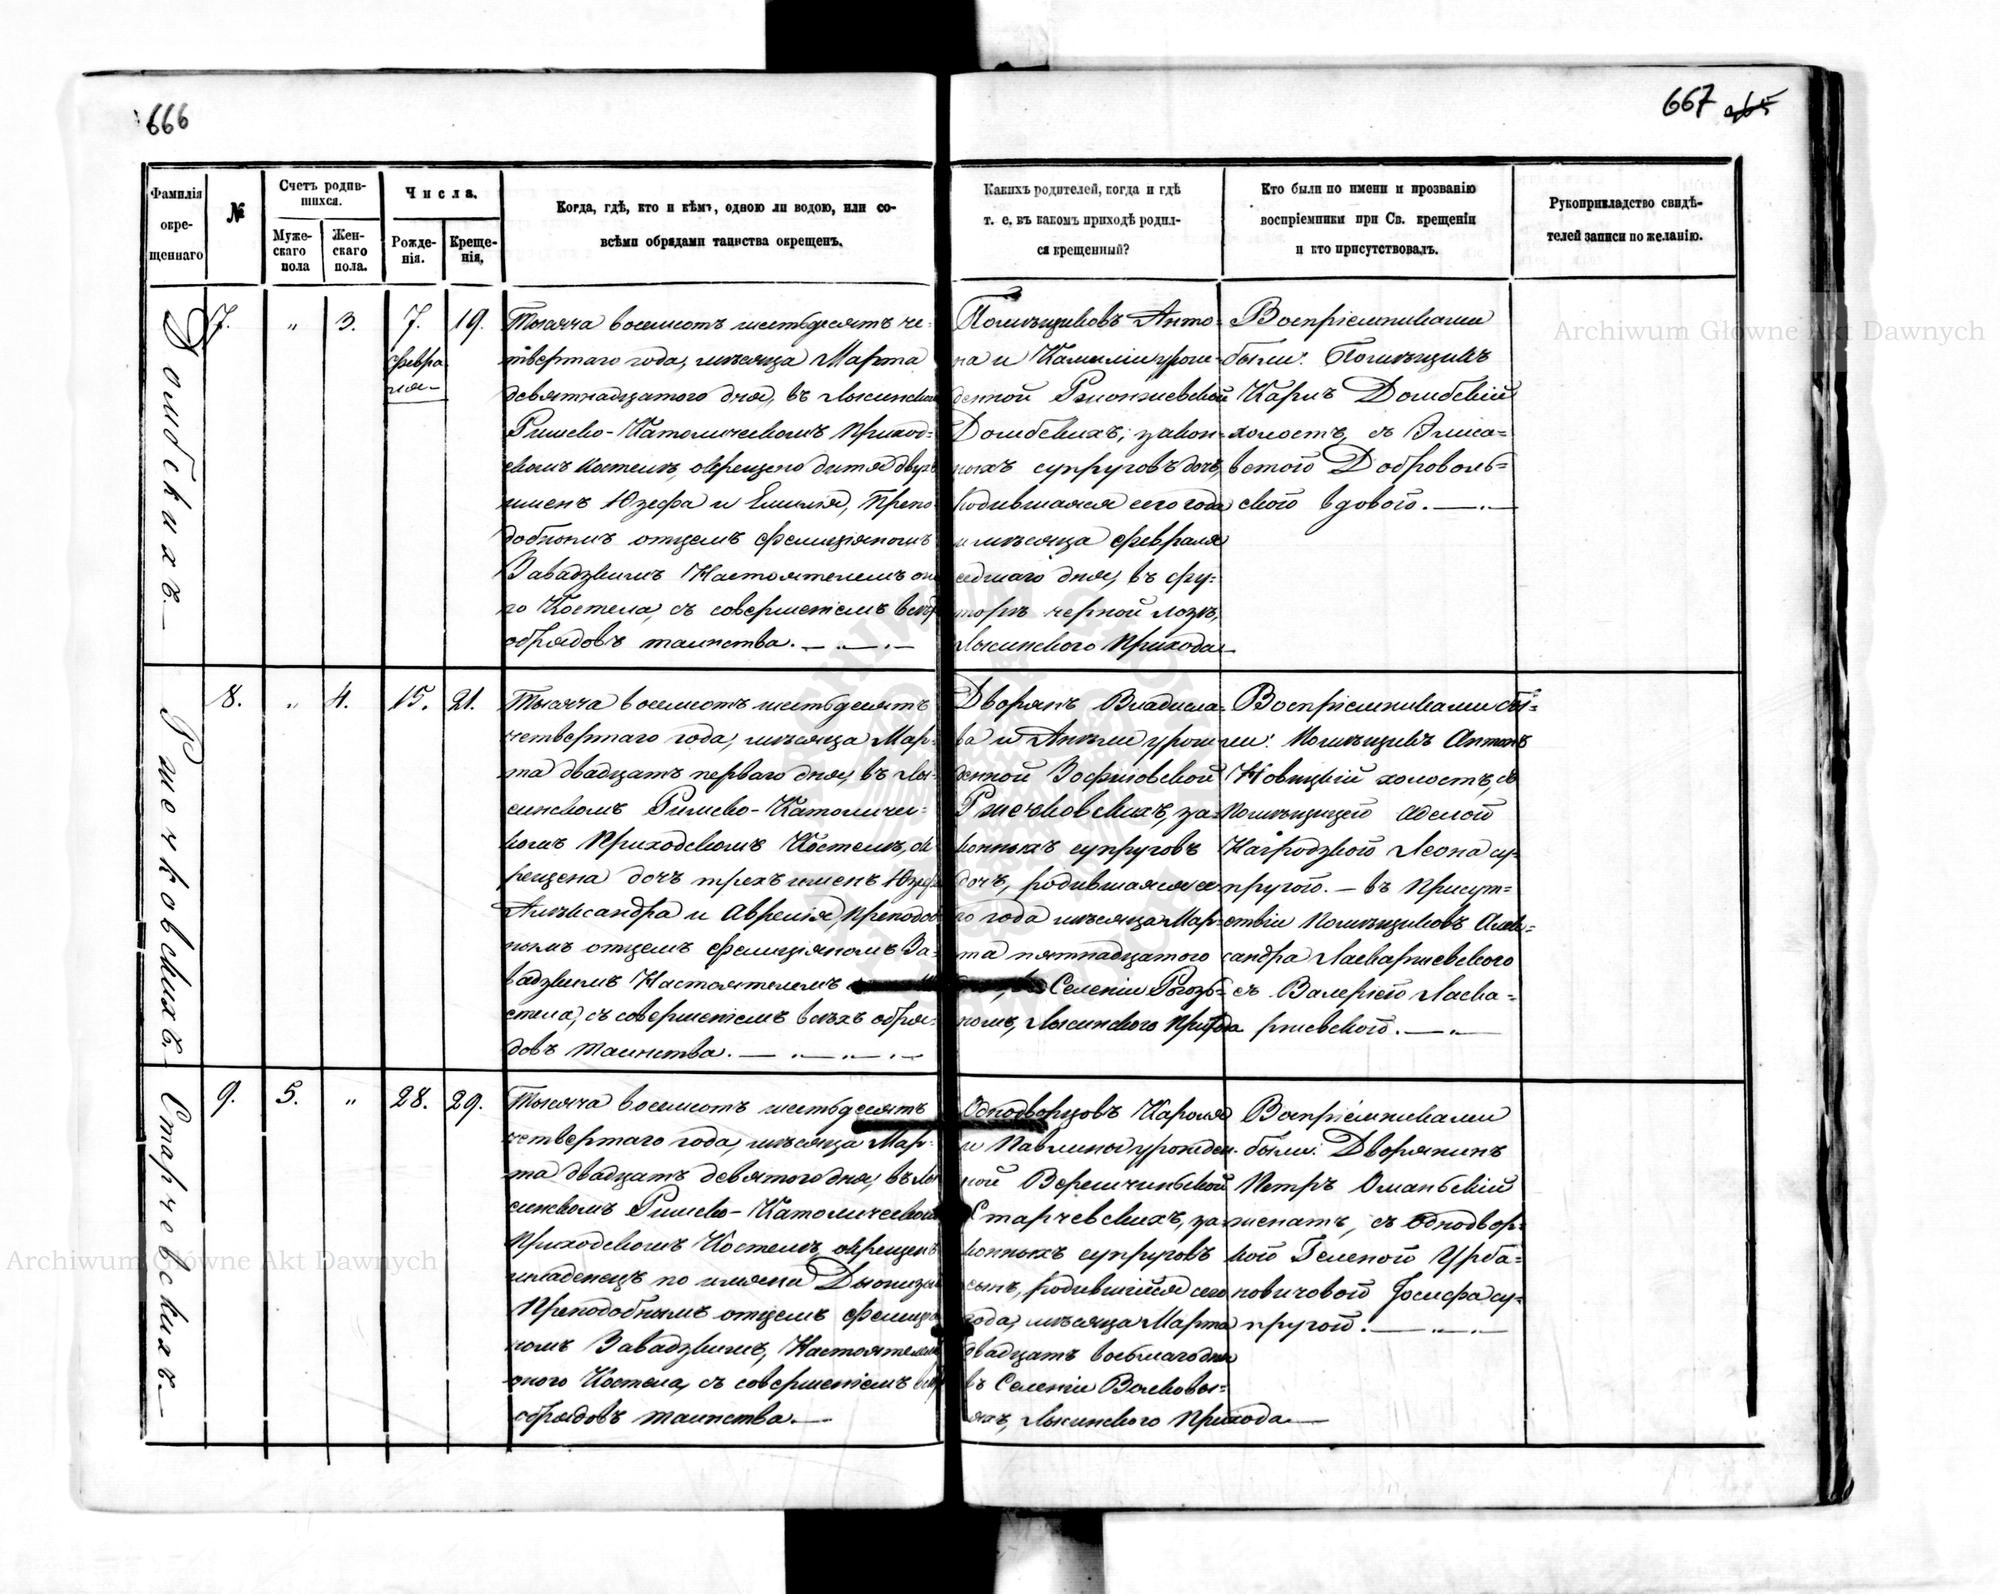 666
667
265
Фамилія окре-щеннаго
№
Счетъ родив-шихся.
Муже-скаго пола
Жен-скаго пола.
Числа.
Рожде-нія.
Креще-нія.
Когда, гдѣ, кто и кѣмъ, одною ли водою, или со-
всѣми обрядами таинства окрещенъ.
Какихъ родителей, когда и гдѣ
т. е. въ какомъ приходѣ родил-
ся крещенный?
Кто были по имени и прозванію
воспріемники при Св. крещеніи
и кто присутствовалъ.
Рукоприкладство свидѣ-
телей записи по желанію.
Домбскихъ.
7.
"
3.
7.
февра
ля
19.
Тысяча восемсотъ шестьдесятъ че-
твертаго года, мѣсяца Марта
девятнадцатого дня, въ Лысинском
Римско-Католическомъ Приход-
скомъ Костелѣ, окрещено дитя двухъ
именъ Юзефа и Емилія, Препо-
добнымъ отцемъ Фелиціяномъ
Завадзкимъ Настоятелемъ она
го Костела, съ совершеніемъ всѣхъ
обрядовъ таинства.
Помѣщиковъ Анто-
на и Камиліи урож-
денной Рмонжевской
Домбскихъ, закон-
ныхъ супруговъ дочь,
родившаяся сего года
и мѣсяца февраля
седмаго дня, въ фу-
торѣ черной лозѣ,
Лысинского Прихода
Воспріемниками
были: Помѣщикъ
Карлъ Домбскій
холостъ, съ Элиса-
ветою Доброволь-
ской вдовой.
Ржечковскихъ.
8.
"
4.
15.
21.
Тысяча восемсотъ шестьдесятъ
четвертаго года, мѣсяца Мар-
та двадцать перваго дня, въ Лы-
синскомъ Римско-Католичес-
комъ Приходскомъ Костелѣ, ок
рещена дочь трехъ именъ Юзефа
Александра и Аврелія, преподоб
нымъ отцемъ Фелиціяномъ За-
вадзкимъ Настоятелемъ
стела, съ совершеніемъ всѣхъ обря-
довъ таинства.
Дворянъ Владисла-
ва и Анели урож
денной Зофиіовской
Ржечковскихъ, за-
конныхъ супруговъ
дочь, родившаяся се
го года мѣсяца Мар-
та пятнадцатого
Селеніи Рогозь-
номъ, Лысинского Прихода
Воспріемниками бы-
ли: Помѣщикъ Антонъ
Новицкій холостъ, съ
Помѣщицей Аделой
Нагродзкой Леона су-
пругой. — въ Присут-
ствіи Помѣщиковъ Алек-
сандра Ласкаржевского
съ Валеріей Ласка-
ржевской.
Старчевскихъ.
9.
5.
"
28.
29.
Тысяча восемсотъ шестьдесятъ
четвертаго года, мѣсяца Мар-
та двадцать девятого дня, въ Лы
синскомъ Римско-Католическомъ
Приходскомъ Костелѣ, окрещенъ
младенецъ по имяни Дыонизый
Преподобнымъ отцемъ Фелиція
номъ Завадзкимъ, Настоятелемъ
оного Костела, съ совершеніемъ всѣхъ
обрядовъ таинства.
Однодворцовъ Кароля
и Павлины урожден-
ной Верешчинской
Старчевскихъ, за-
конныхъ супруговъ
сынъ, родившійся сего
года, мѣсяца Марта
двадцать восьмаго дня
въ Селеніи Волковы-
яхъ, Лысинского Прихода
Воспріемниками
были: Дворянинъ
Петръ Оманьскій
женатъ, съ Однодвор-
кой Геленой Урба-
новичовой Іосифа су-
пругой.
Archiwum Główne Akt Dawnych
Archiwum Główne Akt Dawnych